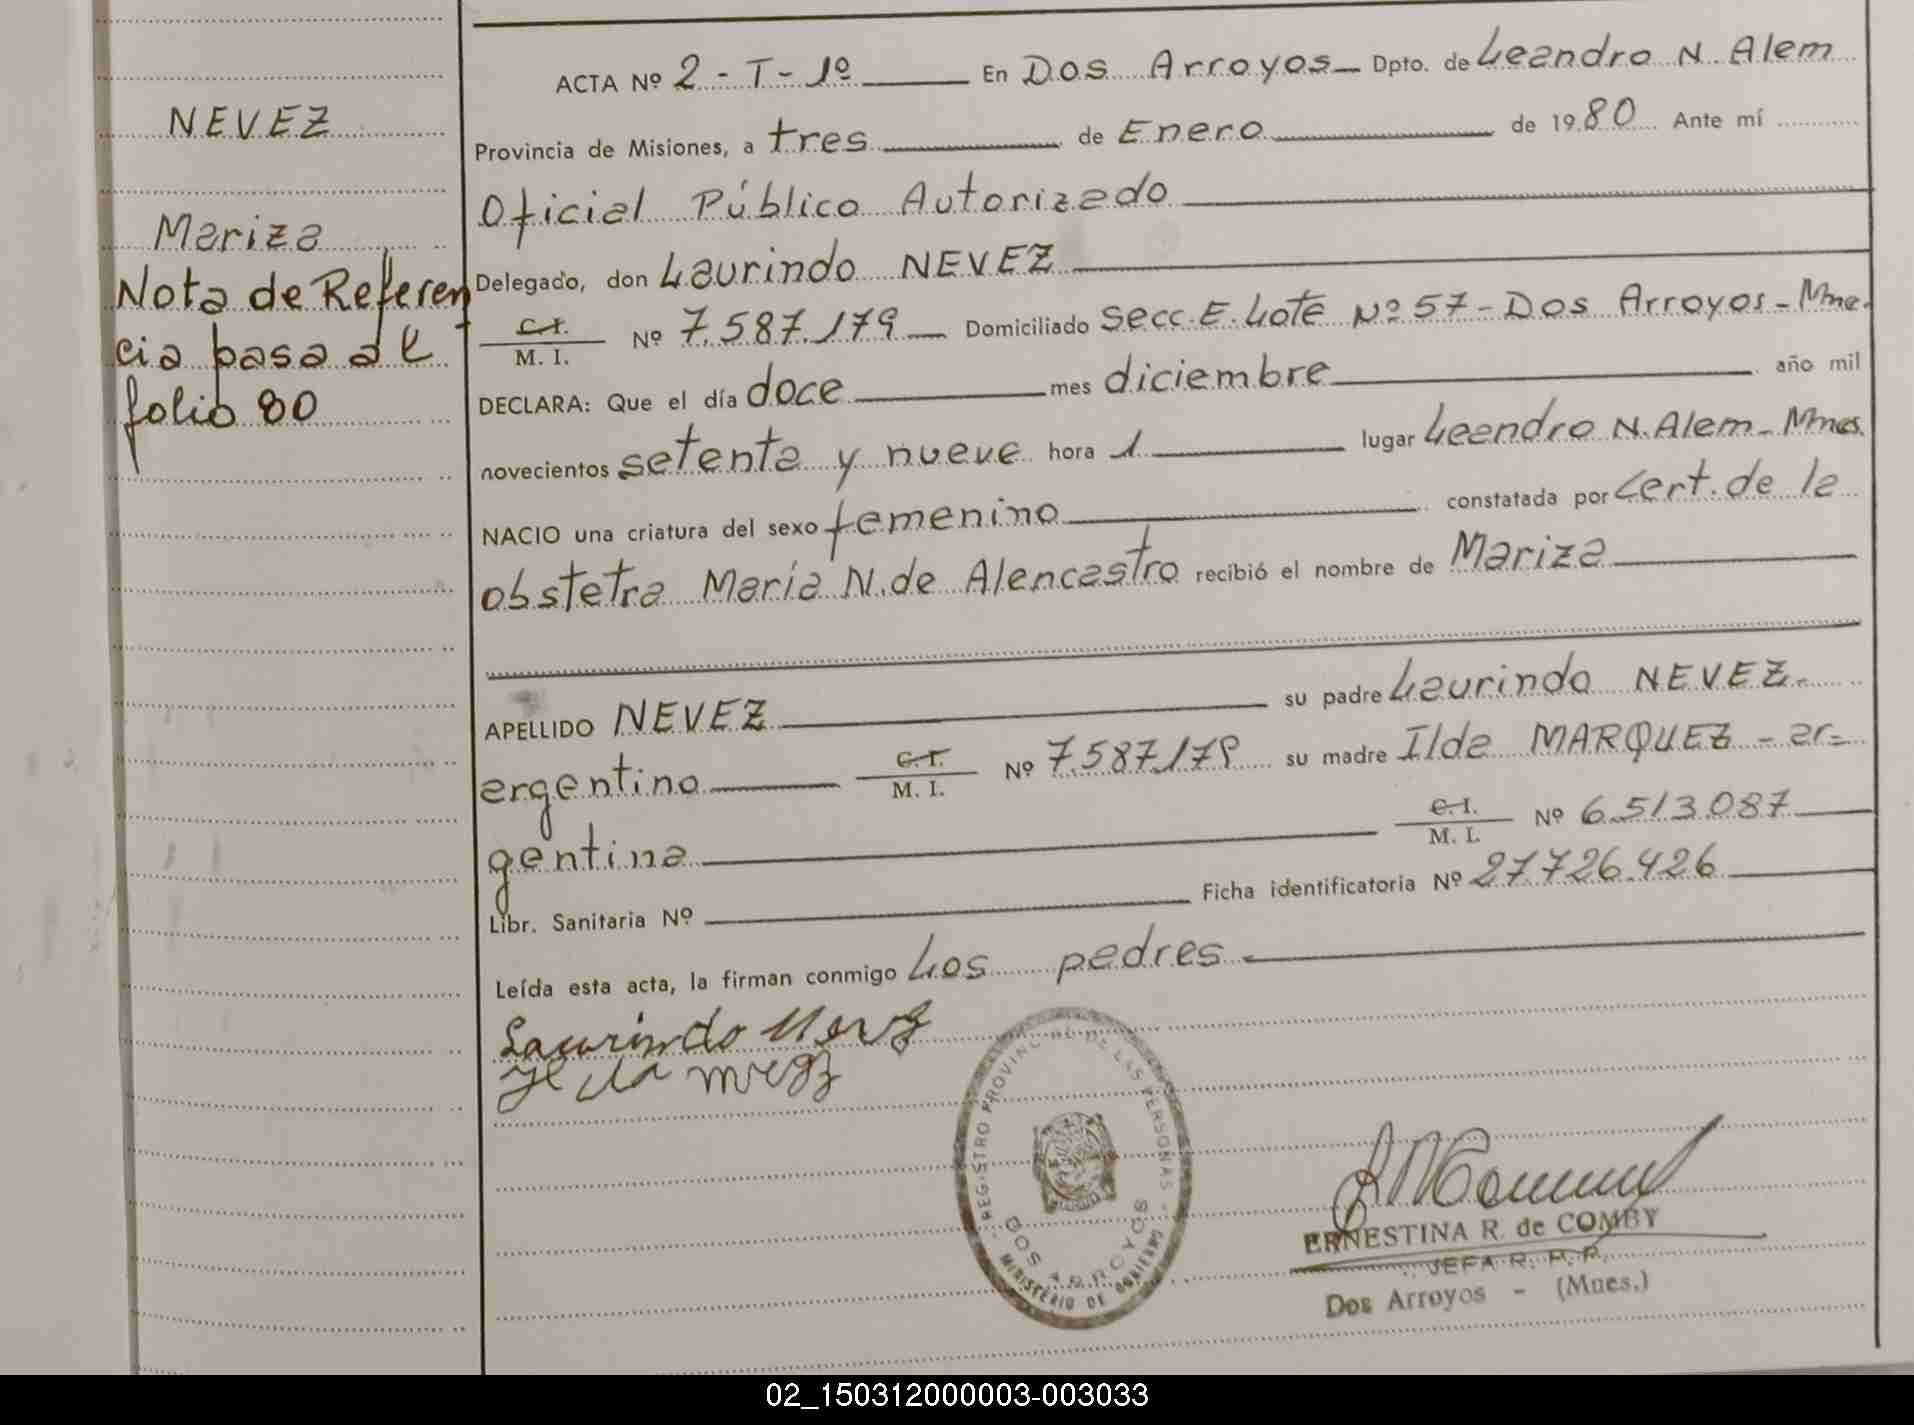 NEVEZ
Mariza
Nota de Referen
cia pasa al
folio 80
ACTA Nº 2 - T - 1º En Dos Arroyos Dpto. de Leandro N. Alem
Provincia de Misiones, a tres de Enero de 1980 Ante mí
Oficial Público Autorizado
Delegado, don Laurindo NEVEZ
C.I.
M. I. Nº 7.587.179 Domiciliado Secc. E. Lote Nº 57 - Dos Arroyos - Mne.
DECLARA: Que el día doce mes diciembre año mil
novecientos setenta y nueve hora 1 lugar Leandro N. Alem - Mnes.
NACIO una criatura del sexo femenino constatada por Cert. de la
obstetra María N. de Alencastro recibió el nombre de Mariza
APELLIDO NEVEZ su padre Laurindo NEVEZ
argentino C.I.
M. I. Nº 7.587.179 su madre Ilda MARQUEZ - ar=
gentina C.I.
M. I. Nº 6.513.087
Libr. Sanitaria Nº Ficha identificatoria Nº 27.726.426
Leída esta acta, la firman conmigo Los padres
Laurindo Nevez
REGISTRO PROVINCIAL DE LAS PERSONAS
DOS ARROYOS
MINISTERIO DE GOBIERNO
ERNESTINA R. de COMBY
JEFA R. P. P.
Dos Arroyos - (Mnes.)
02_150312000003-003033